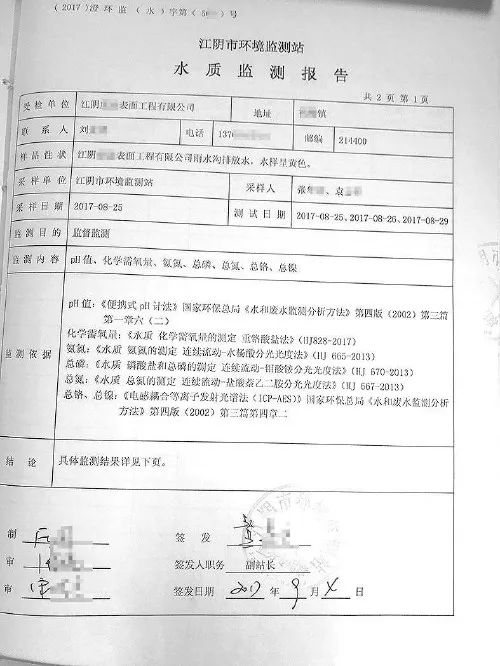 （2017）澄 环 监 （ 水 ）字第（ 50 ）号
江阴市环境监测站
水 质 监 测 报 告
共 2 页 第 1 页
受 检 单 位 江阴 表面工程有限公司 地址 镇
联 系 人 刘 电话 1376 邮编 214400
样 品 性 状 江阴 表面工程有限公司雨水沟排放水，水样呈黄色。
采 样 单 位 江阴市环境监测站 采样人 张 、袁
采 样 日 期 2017-08-25 测 试 日 期 2017-08-25、2017-08-26、2017-08-29
监 测 目 的 监督监测
监 测 内 容 pH 值、化学需氧量、氨氮、总磷、总氮、总铬、总镍
监 测 依 据
pH 值：《便携式 pH 计法》国家环保总局《水和废水监测分析方法》第四版（2002）第三篇
第一章六（二）
化学需氧量：《水质 化学需氧量的测定 重铬酸盐法》（HJ828-2017）
氨氮：《水质 氨氮的测定 连续流动-水杨酸分光光度法》（HJ 665-2013）
总磷：《水质 磷酸盐和总磷的测定 连续流动-钼酸铵分光光度法》（HJ 670-2013）
总氮：《水质 总氮的测定 连续流动-盐酸萘乙二胺分光光度法》（HJ 667-2013）
总铬、总镍：《电感耦合等离子发射光谱法（ICP-AES）》国家环保总局《水和废水监测分析
方法》第四版（2002）第三篇第四章二
结 论 具体监测结果详见下页。
制 签 发
审 签发人职务 副站长
审 签发日期 2017 年 9 月 4 日